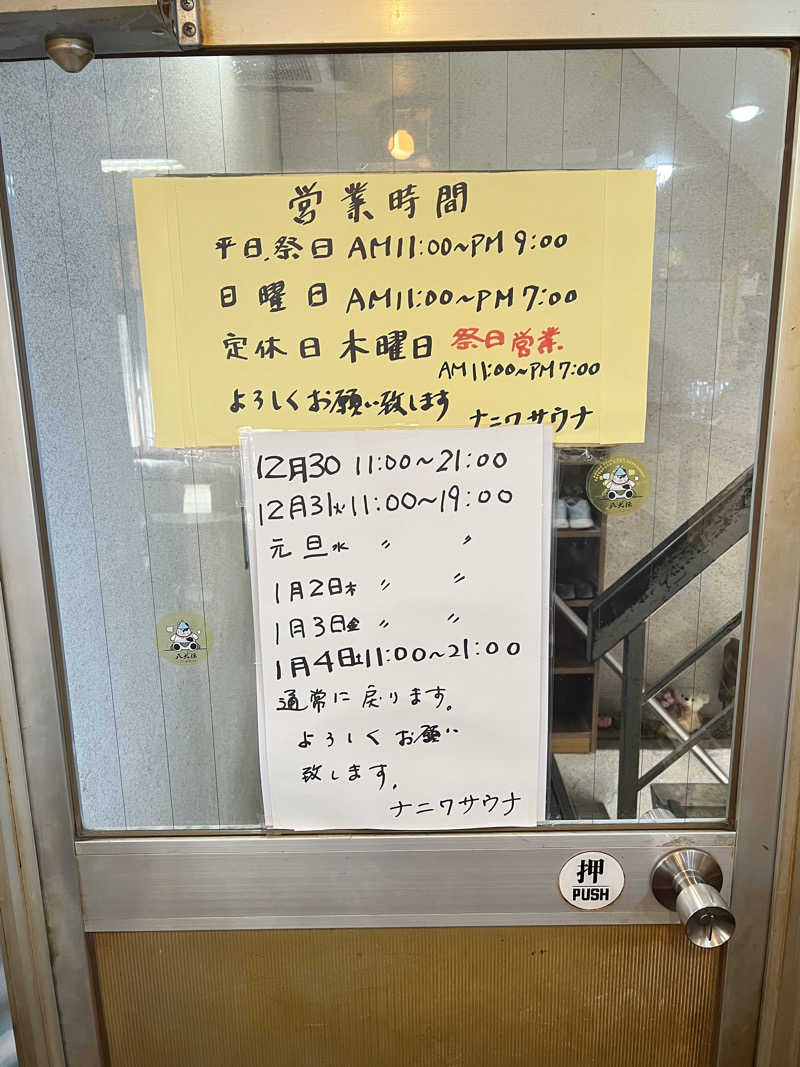 営業時間
平日、祭日 AM11:00~PM 9:00
日曜日 AM11:00~PM7:00
定休日 木曜日 祭日営業
AM11:00~PM7:00
よろしくお願い致します
ナニワサウナ
12月30 11:00~21:00
12月31火11:00~19:00
元旦水 〃 〃
1月2日木 〃 〃
1月3日金 〃 〃
1月4日土11:00~21:00
通常に戻ります。
よろしくお願い
致します。
ナニワサウナ
八犬伝
八犬伝
押
PUSH